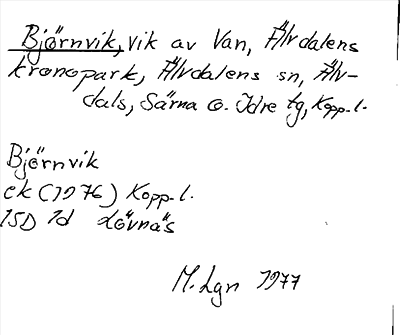 Björnvik, vik av Van, Älvdalens
kronopark, Älvdalens sn, Älv-
dals, Särna o. Idre tg, Kopp.l.
Björnvik
ek (1976) Kopp.l.
15D 1d Lövnäs
M. Lgn 1977